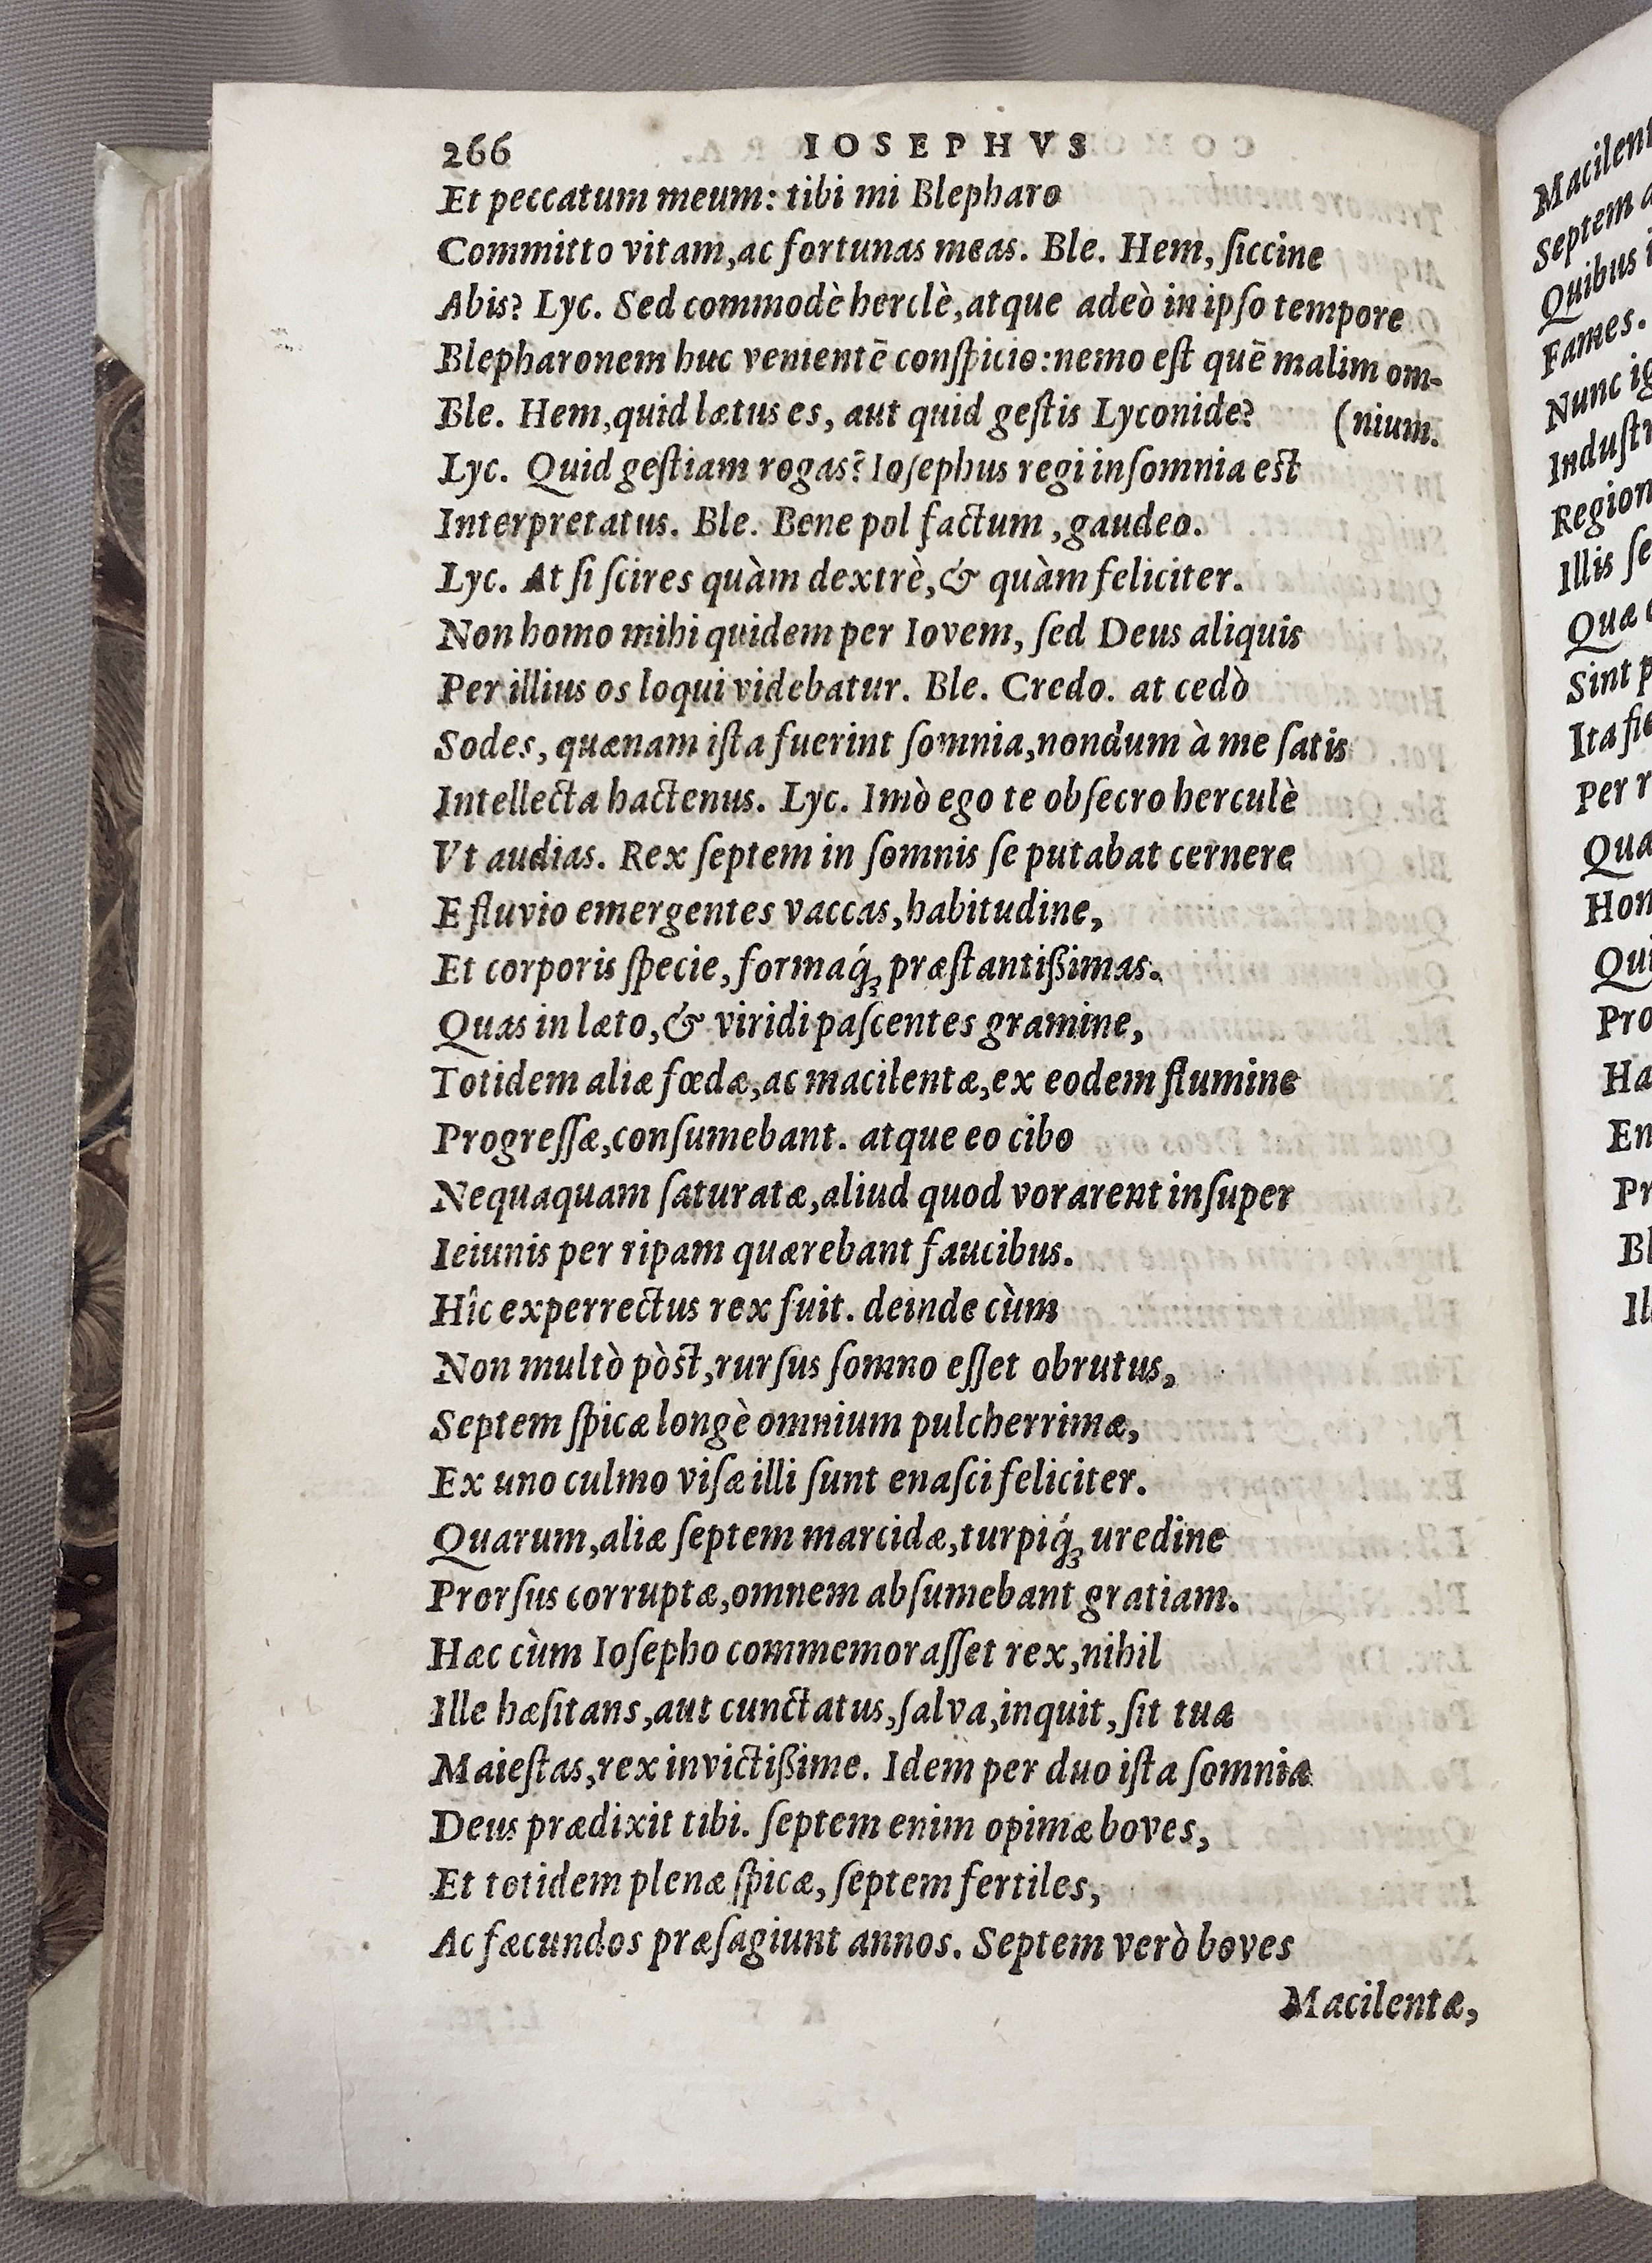 266 IOSEPHVS
Et peccatum meum: tibi mi Blepharo
Committo vitam, ac fortunas meas. Ble. Hem, ſiccine
Abis? Lyc. Sed commodè herclè, atque adeò in ipſo tempore
Blepharonem huc venientē conſpicio: nemo eſt quē malim om-
Ble. Hem, quid lætus es, aut quid geſtis Lyconide? (nium.
Lyc. Quid geſtiam rogas? Ioſephus regi inſomnia eſt
Interpretatus. Ble. Bene pol factum, gaudeo.
Lyc. At ſi ſcires quàm dextrè, & quàm feliciter.
Non homo mihi quidem per Iovem, ſed Deus aliquis
Per illius os loqui videbatur. Ble. Credo. at cedò
Sodes, quænam iſta fuerint ſomnia, nondum à me ſatis
Intellecta hactenus. Lyc. Imò ego te obſecro herculè
Vt audias. Rex ſeptem in ſomnis ſe putabat cernere
E fluvio emergentes vaccas, habitudine,
Et corporis ſpecie, formaq́ꝫ præſtantißimas.
Quas in læto, & viridi paſcentes gramine,
Totidem aliæ fœdæ, ac macilentæ, ex eodem flumine
Progreſſæ, conſumebant. atque eo cibo
Nequaquam ſaturatæ, aliud quod vorarent inſuper
Ieiunis per ripam quærebant faucibus.
Hîc experrectus rex fuit. deinde cùm
Non multò pòſt, rurſus ſomno eſſet obrutus,
Septem ſpicæ longè omnium pulcherrimæ,
Ex uno culmo viſæ illi ſunt enaſci feliciter.
Quarum, aliæ ſeptem marcidæ, turpiq́ꝫ uredine
Prorſus corruptæ, omnem abſumebant gratiam.
Hæc cùm Ioſepho commemoraſſet rex, nihil
Ille hæſitans, aut cunctatus, ſalva, inquit, ſit tua
Maieſtas, rex invictißime. Idem per duo iſta ſomnia
Deus prædixit tibi. ſeptem enim opimæ boves,
Et totidem plenæ ſpicæ, ſeptem fertiles,
Ac fæcundos præſagiunt annos. Septem verò boves
Macilentæ,
Macilent
Septem
Quibus
Fames.
Nunc
Region
Illis
Quæ
Sint
Ita
Per